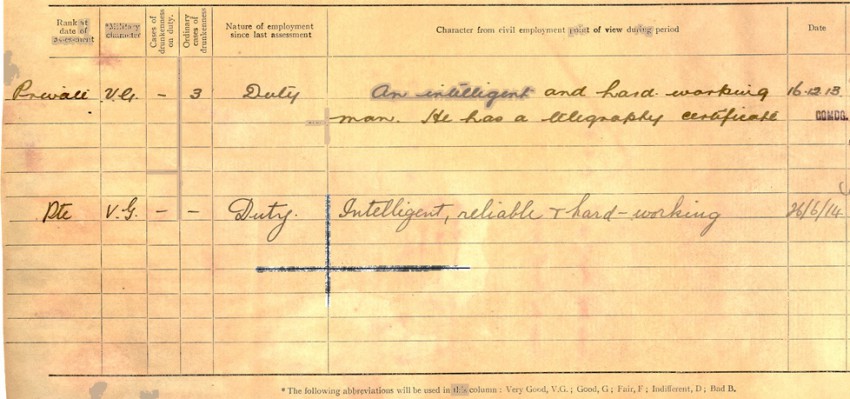 Rank at date of assessment
*Military character
Cases of drunkenness on duty.
Ordinary cases of drunkenness
Nature of employment since last assessment
Character from civil employment point of view during period
Date
Private V.G. – 3 Duty An intelligent and hard working 16.12.13
man. He has a telegraphy certificate
Pte V.G. – – Duty. Intelligent, reliable & hard-working 26/6/14
* The following abbreviations will be used in this column : Very Good, V.G. ; Good, G ; Fair, F ; Indifferent, D ; Bad B.